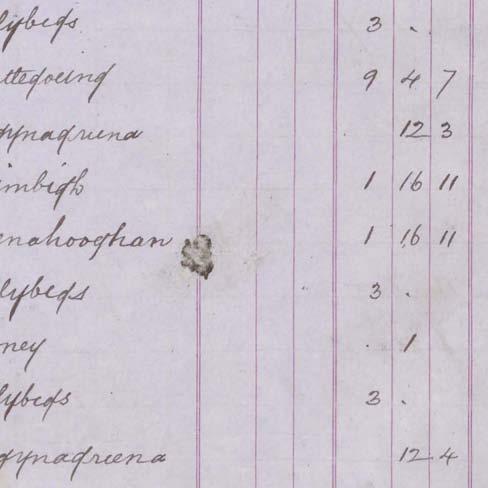 lybegs 3 .
ttegoeing 9 4 7
gynadreena 12 3
imbigh 1 16 11
enahooghan 1 16 11
lybegs 3 .
ney . 1
lybegs 3 .
gynadreena 12 4